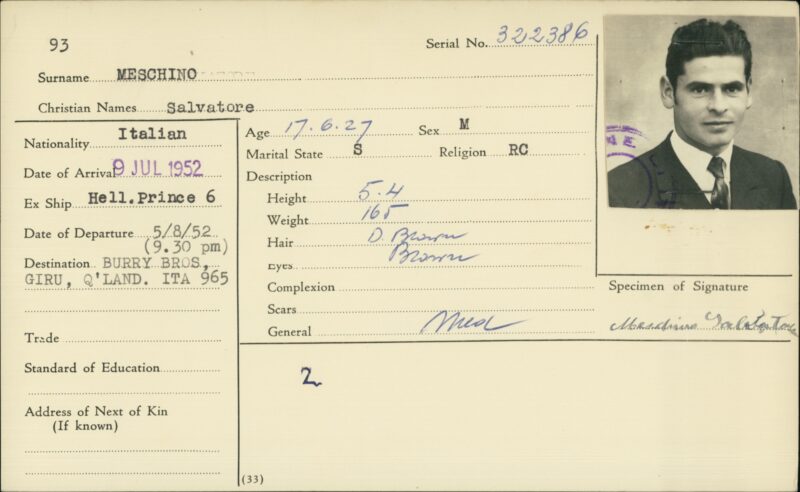 93
Serial No. 322386
Surname MESCHINO
Christian Names Salvatore
Nationality Italian
Date of Arrival 9 JUL 1952
Ex Ship Hell.Prince 6
Date of Departure 5/8/52
(9.30 pm)
Destination BURRY BROS,
GIRU, Q'LAND. ITA 965
Trade
Standard of Education
Address of Next of Kin
(If known)
Age 17.6.27 Sex M
Marital State S Religion RC
Description
Height 5.4
Weight 165
Hair D. Brown
Eyes Brown
Complexion
Scars
General Med
2
(33)
Specimen of Signature
Salvatore